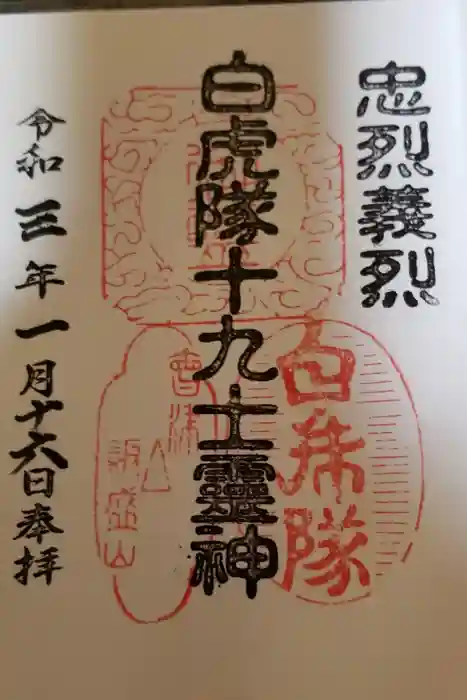 忠烈義烈
白虎隊十九士靈神
令和三年一月十六日奉拝
白虎隊
會津
飯盛山